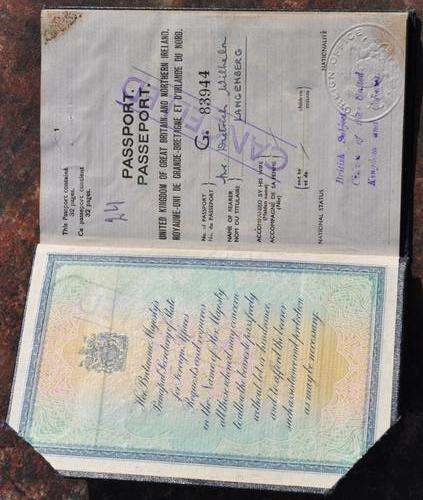 Her Britannic Majesty's
Principal Secretary of State
for Foreign Affairs
Requests and requires
in the Name of Her Majesty
all those whom it may concern
to allow the bearer to pass freely
without let or hindrance,
and to afford the bearer
such assistance and protection
as may be necessary.
This Passport contains
32 pages.
Ce passeport contient
32 pages.
1
PASSPORT.
PASSEPORT.
UNITED KINGDOM OF GREAT BRITAIN AND NORTHERN IRELAND.
ROYAUME-UNI DE GRANDE-BRETAGNE ET D'IRLANDE DU NORD.
No. of PASSPORT
No. du PASSEPORT
C. 83944
NAME OF BEARER
NOM DU TITULAIRE
Mr Dietrich Wilhelm
LANGENBERG
ACCOMPANIED BY HIS WIFE
(Maiden name)
ACCOMPAGNÉ DE SA FEMME
(Née)
and by
et de
children
enfants
NATIONAL STATUS
NATIONALITÉ
British Subject:
Citizen of the United
Kingdom and Colonies
CANCELLED